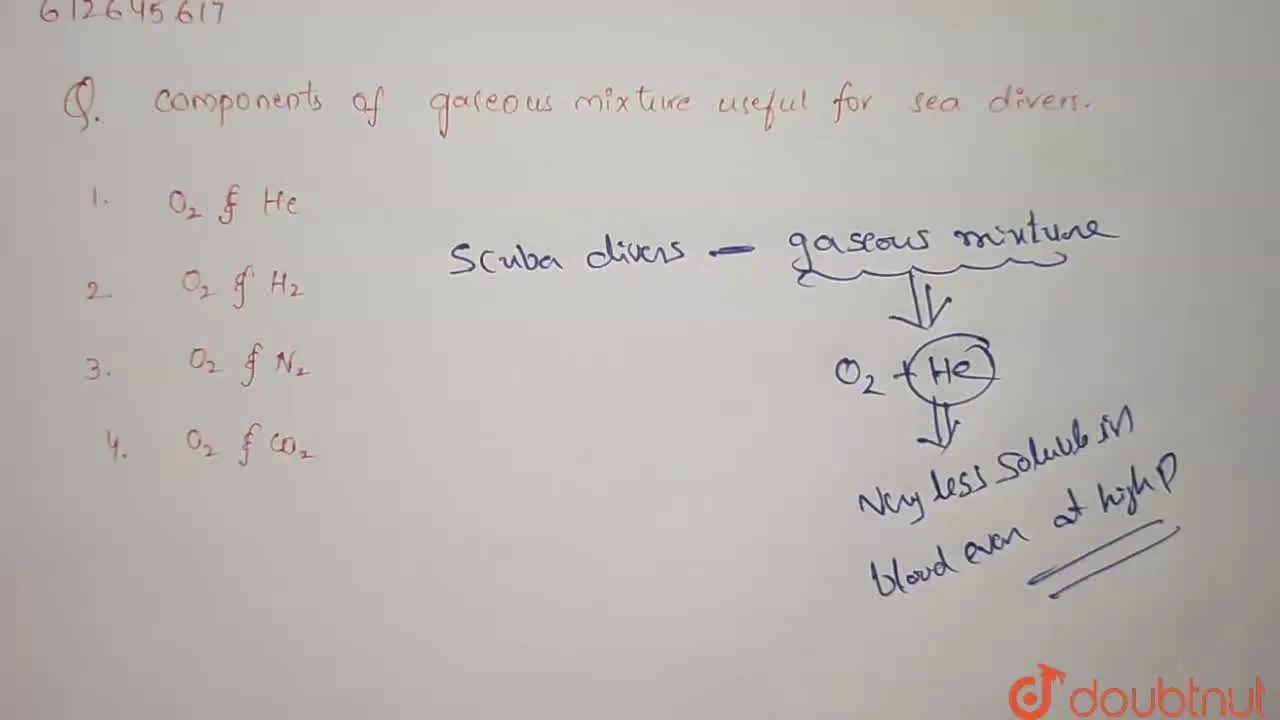 612645617
Q. components of gaseous mixture useful for sea divers.
1. O₂ & He
2. O₂ & H₂
3. O₂ & N₂
4. O₂ & CO₂
Scuba divers - gaseous mixture
O₂ + He
Very less soluble in
blood even at high P
doubtnut